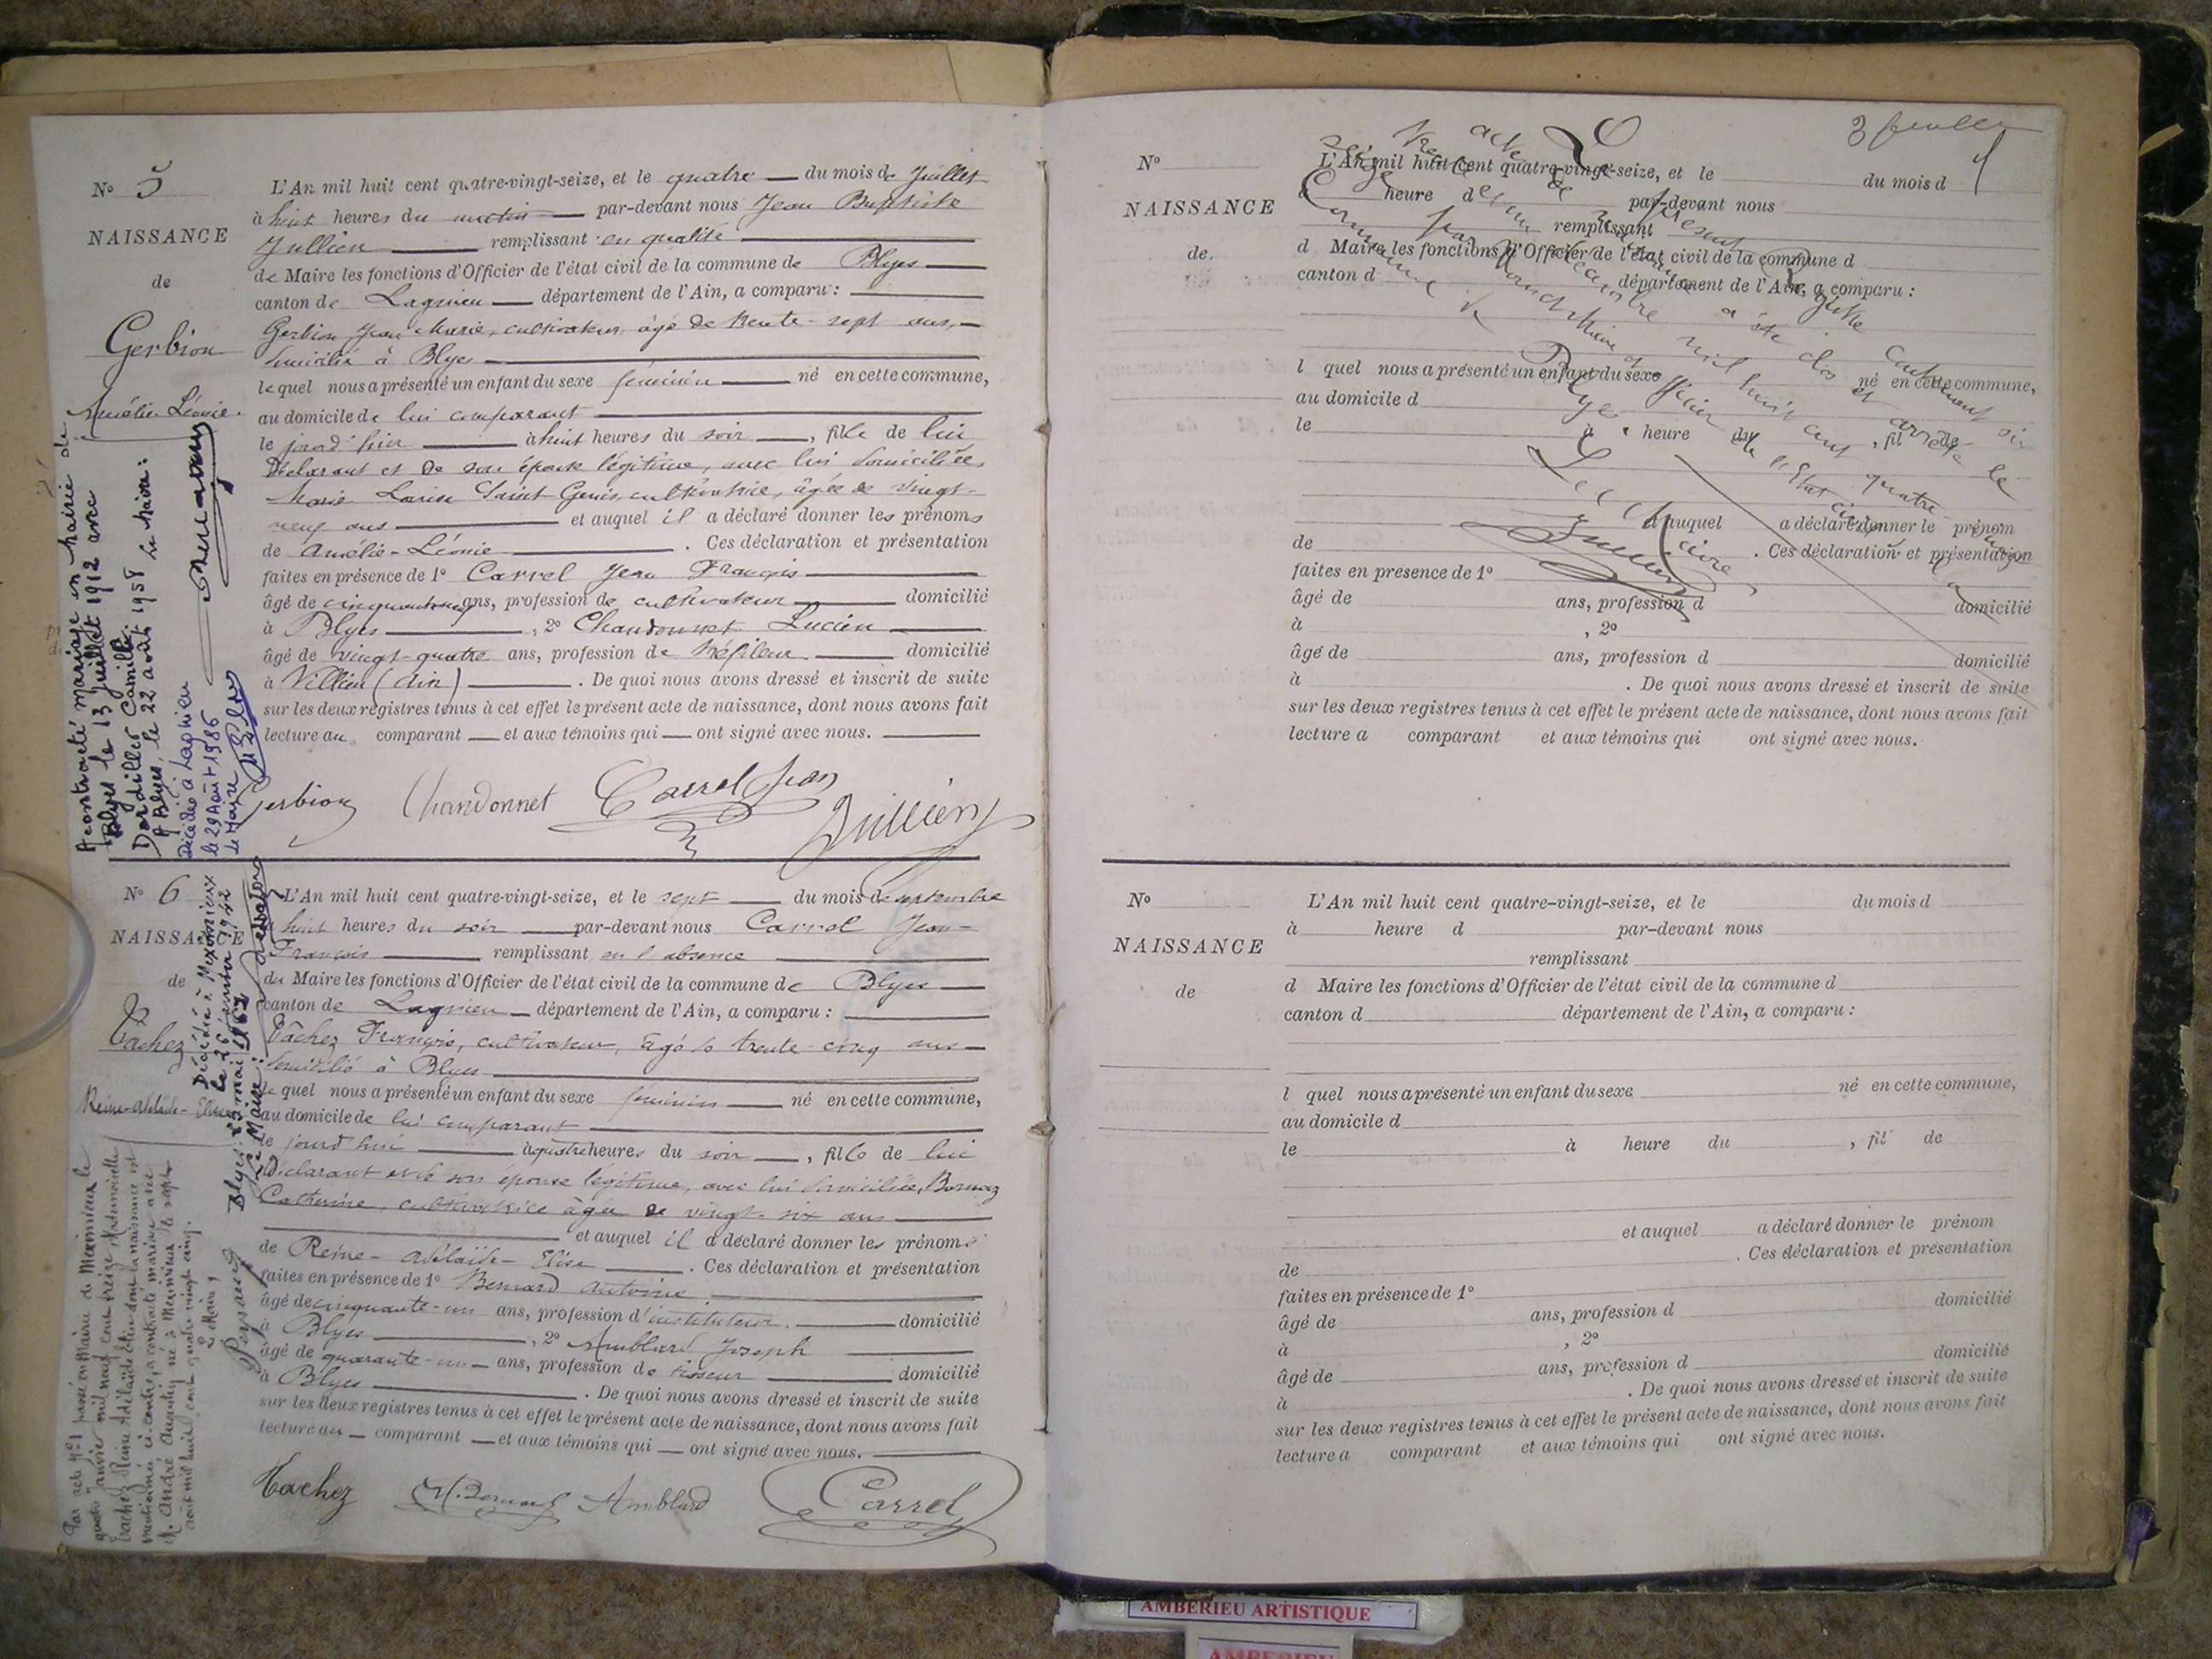 N° 5
NAISSANCE
de
Gerbion
Amélie Léonie.
L'An mil huit cent quatre-vingt-seize, et le quatre du mois de Juillet
à huit heures du matin par-devant nous Jean Baptiste
Jullien remplissant en qualité
de Maire les fonctions d'Officier de l'état civil de la commune de Blyes
canton de Lagnieu département de l'Ain, a comparu :
Gerbion Jean Marie, cultivateur, âgé de trente-sept ans,
domicilié à Blyes
lequel nous a présenté un enfant du sexe féminin né en cette commune,
au domicile de lui comparant
le jourd'hier à huit heures du soir, fille de lui
déclarant et de son épouse légitime, avec lui domiciliée,
Marie Louise Saint-Genis, cultivatrice, âgée de vingt-
neuf ans et auquel il a déclaré donner les prénoms
de Amélie-Léonie. Ces déclaration et présentation
faites en présence de 1° Carrel Jean François
âgé de ans, profession de cultivateur domicilié
à Blyes, 2° Chandonnet Lucien
âgé de vingt-quatre ans, profession de tréfileur domicilié
à Villieu (Ain). De quoi nous avons dressé et inscrit de suite
sur les deux registres tenus à cet effet le présent acte de naissance, dont nous avons fait
lecture au comparant et aux témoins qui ont signé avec nous.
Gerbion Chandonnet Carrel Jean Jullien
A contracté mariage en mairie de
Blyes le 13 juillet 1912 avec
Dordilles Camille.
A Blyes, le 22 août 1958 Le Maire :
Décédée à Lagnieu
le 29 Août 1986
Le Maire
N° 6
NAISSANCE
de
Vachez
Reine-Adélaïde-Elise
L'An mil huit cent quatre-vingt-seize, et le sept du mois de septembre
à huit heures du soir par-devant nous Carrel Jean-
François remplissant en l'absence
du Maire les fonctions d'Officier de l'état civil de la commune de Blyes
canton de Lagnieu département de l'Ain, a comparu :
Vachez François, cultivateur, âgé de trente-cinq ans
domicilié à Blyes
lequel nous a présenté un enfant du sexe féminin né en cette commune,
au domicile de lui comparant
le jourd'hui à quatre heures du soir, fille de lui
déclarant et de son épouse légitime, avec lui domiciliée,
Catherine, cultivatrice âgée de vingt-six ans
et auquel il a déclaré donner les prénoms
de Reine-Adélaïde-Elise. Ces déclaration et présentation
faites en présence de 1° Bernard Antoine
âgé de cinquante-un ans, profession d'instituteur domicilié
à Blyes, 2° Amblard Joseph
âgé de quarante-un ans, profession de tisseur domicilié
à Blyes. De quoi nous avons dressé et inscrit de suite
sur les deux registres tenus à cet effet le présent acte de naissance, dont nous avons fait
lecture au comparant et aux témoins qui ont signé avec nous.
Vachez Bernard Amblard Carrel
Décédée à Meximieux
Le Maire :
Par acte N° 1 passé en Mairie de Meximieux le
quatre janvier mil neuf cent treize, Mademoiselle
Vachez Reine Adélaïde Elise dont la naissance est
mentionnée ci-contre, a contracté mariage avec
M. André Augustin né à Meximieux le sept
août mil huit cent quatre vingt cinq.
Le Maire
3 feuille
N°
NAISSANCE
de
L'An mil huit cent quatre-vingt-seize, et le du mois d
à heure d par-devant nous
remplissant
d Maire les fonctions d'Officier de l'état civil de la commune d
canton d département de l'Ain, a comparu :
l quel nous a présenté un enfant du sexe né en cette commune,
au domicile d
le à heure du , fil de
et auquel a déclaré donner le prénom
de . Ces déclaration et présentation
faites en présence de 1°
âgé de ans, profession d domicilié
à , 2°
âgé de ans, profession d domicilié
à . De quoi nous avons dressé et inscrit de suite
sur les deux registres tenus à cet effet le présent acte de naissance, dont nous avons fait
lecture a comparant et aux témoins qui ont signé avec nous.
Le présent Registre contenant six
acte de a été clos et arrêté le
décembre mil huit cent quatre-
par nous Maire et Officier de l'Etat civil
Commune de Blyes
Le Maire
N°
NAISSANCE
de
L'An mil huit cent quatre-vingt-seize, et le du mois d
à heure d par-devant nous
remplissant
d Maire les fonctions d'Officier de l'état civil de la commune d
canton d département de l'Ain, a comparu :
l quel nous a présenté un enfant du sexe né en cette commune,
au domicile d
le à heure du , fil de
et auquel a déclaré donner le prénom
de . Ces déclaration et présentation
faites en présence de 1°
âgé de ans, profession d domicilié
à , 2°
âgé de ans, profession d domicilié
à . De quoi nous avons dressé et inscrit de suite
sur les deux registres tenus à cet effet le présent acte de naissance, dont nous avons fait
lecture a comparant et aux témoins qui ont signé avec nous.
AMBERIEU ARTISTIQUE
AMBERIEU